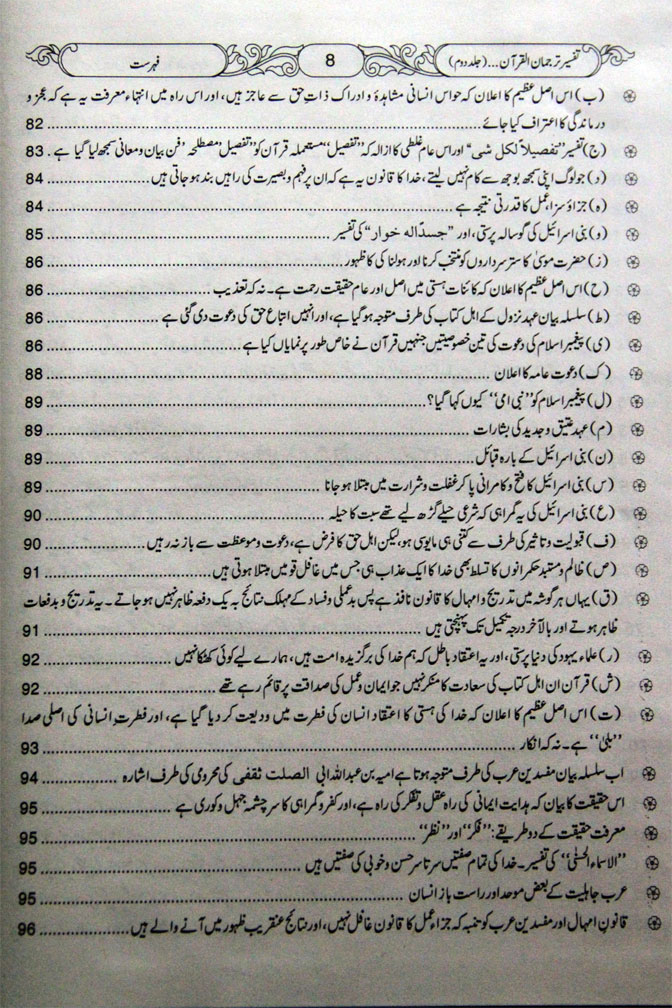 تفسیر ترجمان القرآن...(جلد دوم)
8
فہرست
(ب) اس اصل عظیم کا اعلان کہ حواس انسانی مشاہدۂ و ادراک ذاتِ حق سے عاجز ہیں، اور اس راہ میں انتہاء معرفت یہ ہے کہ عجز و
درماندگی کا اعتراف کیا جائے ........ 82
(ج) تفسیر "تفصیلاً لکل شی" اور اس عام غلطی کا ازالہ کہ "تفصیل" مستعملہ قرآن کو "تفصیل" مصطلحہ "فن بیان و معانی سمجھ لیا گیا ہے . 83
(د) جو لوگ اپنی سمجھ بوجھ سے کام نہیں لیتے، خدا کا قانون یہ ہے کہ ان پر فہم و بصیرت کی راہیں بند ہو جاتی ہیں ........ 84
(ہ) جزاؤ سزا، عمل کا قدرتی نتیجہ ہے ........ 84
(و) بنی اسرائیل کی گوسالہ پرستی، اور "جسدًاله خوار" کی تفسیر ........ 85
(ز) حضرت موسیٰ کا ستر سرداروں کو منتخب کرنا اور ہولناکی کا ظہور ........ 86
(ح) اس اصل عظیم کا اعلان کہ کائنات ہستی میں اصل اور عام حقیقت رحمت ہے۔ نہ کہ تعذیب ........ 86
(ط) سلسلہ بیان عہد نزول کے اہل کتاب کی طرف متوجہ ہو گیا ہے، اور انہیں اتباع حق کی دعوت دی گئی ہے ........ 86
(ی) پیغمبر اسلام کی دعوت کی تین خصوصیتیں جنہیں قرآن نے خاص طور پر نمایاں کیا ہے ........ 86
(ک) دعوت عامہ کا اعلان ........ 88
(ل) پیغمبر اسلام کو "نبی امی" کیوں کہا گیا؟ ........ 89
(م) عہد عتیق و جدید کی بشارات ........ 89
(ن) بنی اسرائیل کے بارہ قبائل ........ 89
(س) بنی اسرائیل کا فتح و کامرانی پا کر غفلت و شرارت میں مبتلا ہو جانا ........ 89
(ع) بنی اسرائیل کی یہ گمراہی کہ شرعی حیلے گڑھ لیے تھے سبت کا حیلہ ........ 90
(ف) قبولیت و تاثیر کی طرف سے کتنی ہی مایوسی ہو، لیکن اہل حق کا فرض ہے، دعوت و موعظت سے باز نہ رہیں ........ 90
(ص) ظالم و مستبد حکمرانوں کا تسلط بھی خدا کا ایک عذاب ہی جس میں غافل قومیں مبتلا ہوتی ہیں ........ 91
(ق) یہاں ہر گوشہ میں تدریج و امہال کا قانون نافذ ہے پس بدعملی و فساد کے مہلک نتائج بہ یک دفعہ ظاہر نہیں ہو جاتے۔ یہ تدریج و بدفعات
ظاہر ہوتے اور بالآخر درجہ تکمیل تک پہنچتی ہیں ........ 91
(ر) علماء یہود کی دنیا پرستی، اور یہ اعتقاد باطل کہ ہم خدا کی برگزیدہ امت ہیں، ہمارے لیے کوئی کھٹکا نہیں ........ 92
(ش) قرآن ان اہل کتاب کی سعادت کا منکر نہیں جو ایمان و عمل کی صداقت پر قائم رہے تھے ........ 92
(ت) اس اصل عظیم کا اعلان کہ خدا کی ہستی کا اعتقاد انسان کی فطرت میں ودیعت کر دیا گیا ہے، اور فطرتِ انسانی کی اصلی صدا
"بلیٰ" ہے۔ نہ کہ انکار ........ 93
اب سلسلہ بیان مفسدین عرب کی طرف متوجہ ہوتا ہے امیہ بن عبداللہ ابی الصلت ثقفی کی محرومی کی طرف اشارہ ........ 94
اس حقیقت کا بیان کہ ہدایت ایمانی کی راہ عقل و تفکر کی راہ ہے، اور کفر و گمراہی کا سرچشمہ جہل و کوری ہے ........ 95
معرفت حقیقت کے دو طریقے: "فکر" اور "نظر" ........ 95
"الاسماء الحسنیٰ" کی تفسیر۔ خدا کی تمام صفتیں سرتا سر حسن و خوبی کی صفتیں ہیں ........ 95
عرب جاہلیت کے بعض موحد اور راست باز انسان ........ 95
قانون امہال اور مفسدین عرب کو تنبہ کہ جزاء عمل کا قانون غافل نہیں، اور نتائج عنقریب ظہور میں آنے والے ہیں ........ 96